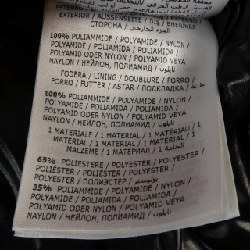 EXTERIOR / AUSSENSEITE /
STOFFA / الجزء الخارجي
100% POLIAMMIDE / POLYAMIDE / NYLON /
POLYAMIDE / POLIAMIDA / POLIAMIDA /
POLYAMID ODER NYLON / POLYAMID VEYA
NAYLON / НЕЙЛОН, ПОЛИАМИД / نايلون
FODERA / LINING / DOUBLURE / FORRO /
FORRO / FUTTER / ASTAR / ПОДКЛАДКА /
100% POLIAMMIDE / POLYAMIDE / NYLON /
POLYAMIDE / POLIAMIDA / POLIAMIDA /
POLYAMID ODER NYLON / POLYAMID VEYA
NAYLON / НЕЙЛОН, ПОЛИАМИД / نايلون
1 MATERIALE / 1 MATERIAL / 1
1 MATERIAL / 1 MATERIAL / 1
MALZEME / 1 МАТЕРИАЛ /
65% POLIESTERE / POLYESTER / POLYESTER /
POLIÉSTER / POLIÉSTER / POLYESTER /
POLYESTER / ПОЛИЭСТЕР /
35% POLIAMMIDE / POLYAMIDE / NYLON /
POLYAMIDE / POLIAMIDA / POLIAMIDA /
POLYAMID ODER NYLON / POLYAMID VEYA
NAYLON / НЕЙЛОН, ПОЛИАМИД / نايلون